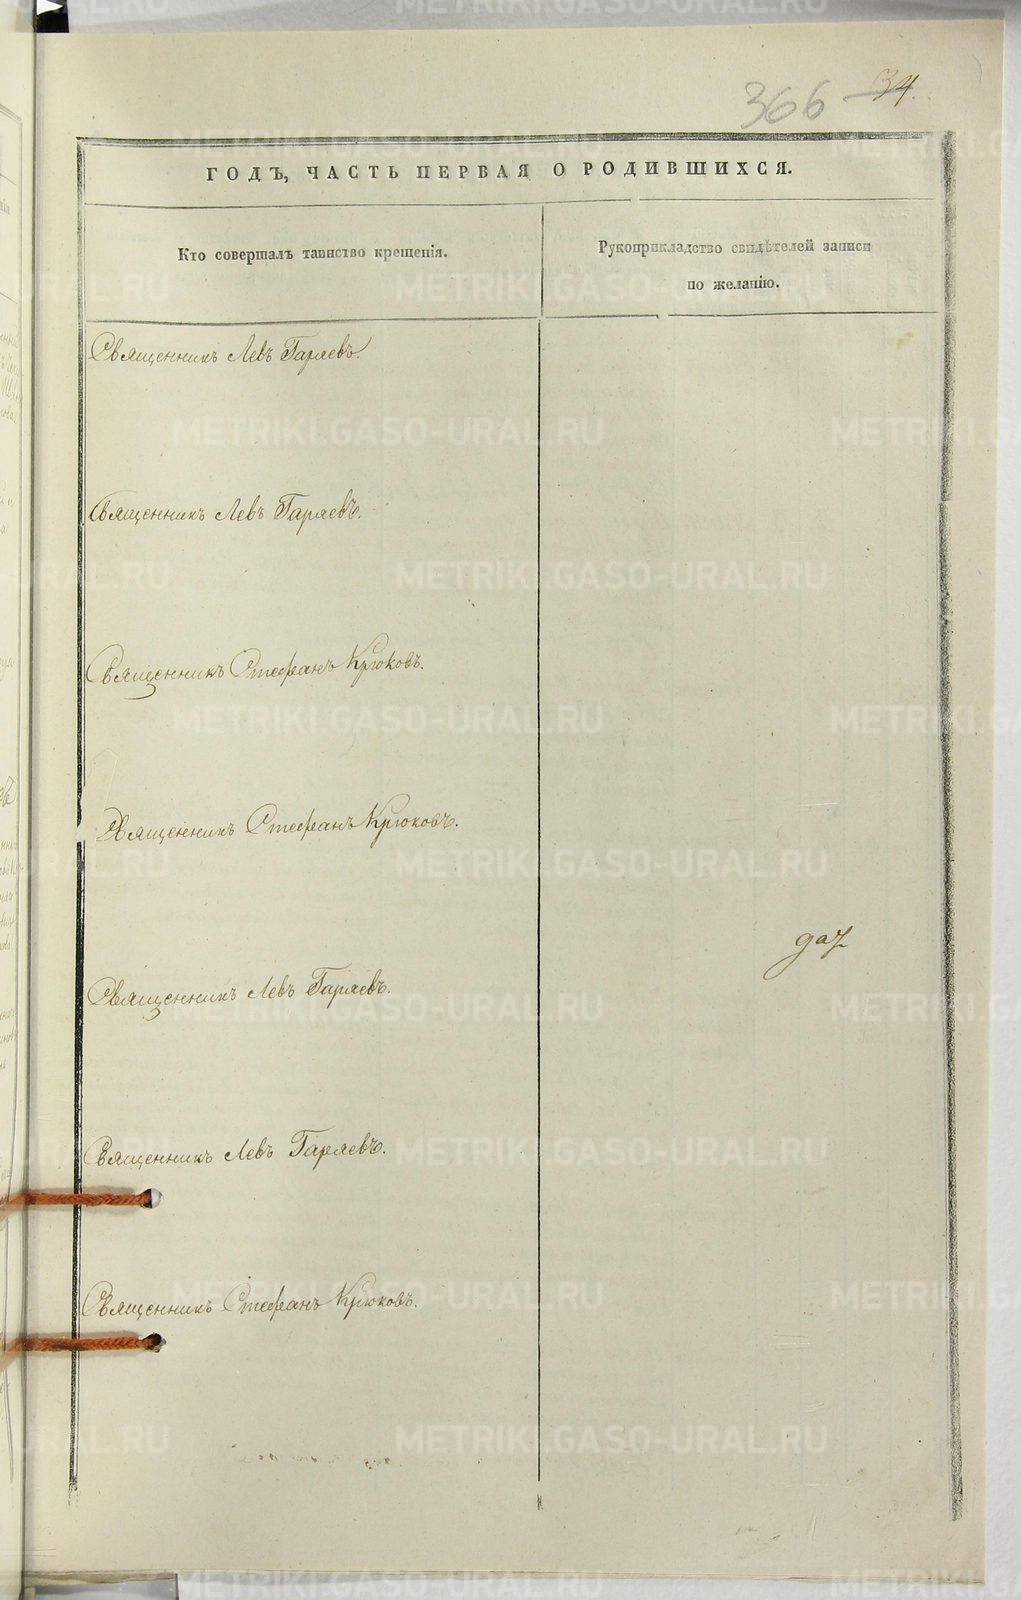 366 34.
ГОДЪ, ЧАСТЬ ПЕРВАЯ О РОДИВШИХСЯ.
Кто совершалъ таинство крещенія.
Рукоприкладство свидѣтелей записи
по желанію.
Священникъ Левъ Гаряевъ.
Священникъ Левъ Гаряевъ.
Священникъ Стефанъ Крюковъ.
Священникъ Стефанъ Крюковъ.
Священникъ Левъ Гаряевъ.
Священникъ Левъ Гаряевъ.
Священникъ Стефанъ Крюковъ.
METRIKI.GASO-URAL.RU